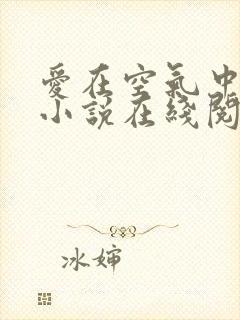 愛在空氣中
小說在綫閱
冰婶